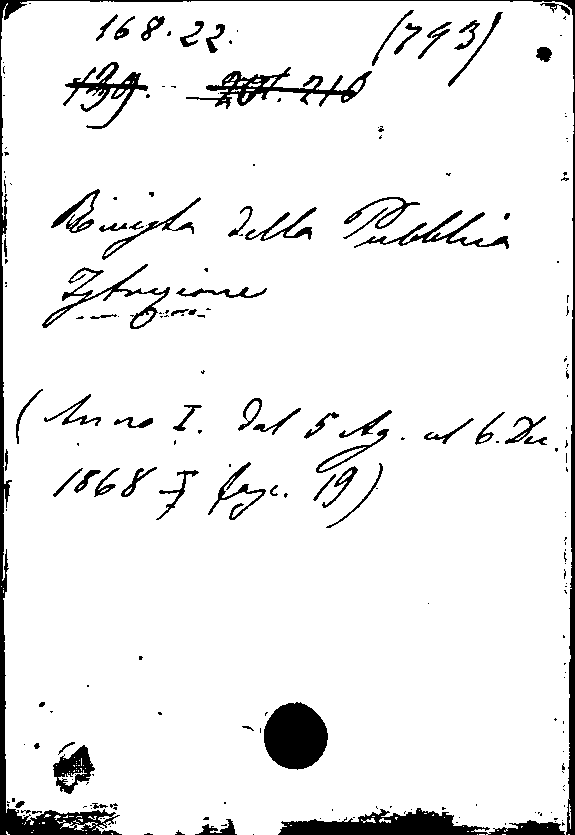 168.22. (793)
139. 201.216
Rivista della Pubblica
Istruzione
(Anno I. dal 5 Ag. al 6. Dec.
1868 fasc. 19)